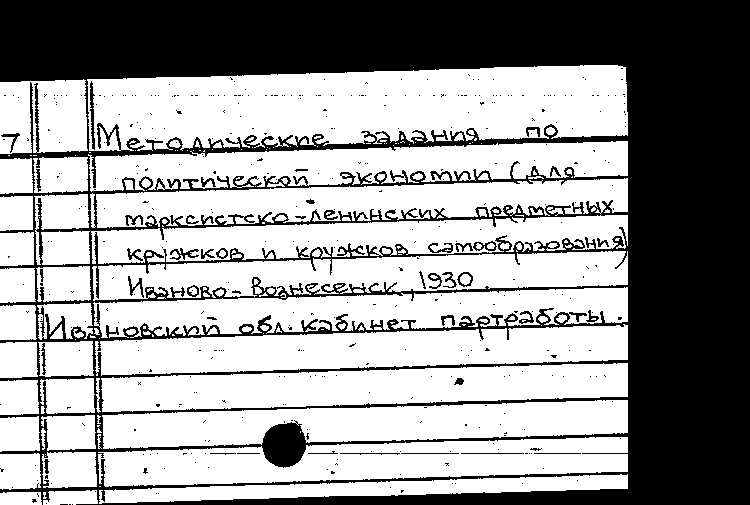 7 Методические задания по
политической экономии (для
марксистско-ленинских предметных
кружков и кружков самообразования)
Иваново-Вознесенск, 1930.
Ивановский обл. кабинет партработы.